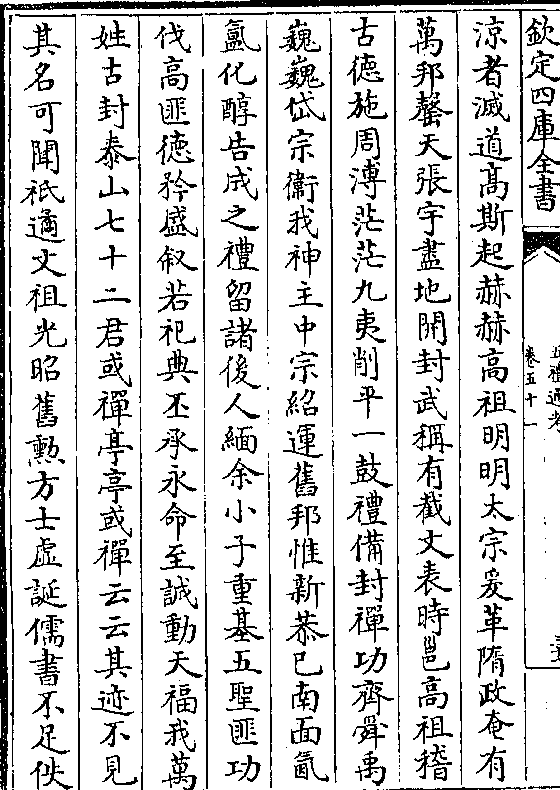 欽定四庫全書
五禮通考
卷五十一
涼者滅道髙斯起赫赫髙祖明明太宗爰革隋政奄有
萬邦罄天張宇盡地開封武稱有截文表時邕高祖稽
古德施周溥茫茫九夷削平一鼓禮備封禪功齊舜禹
巍巍岱宗衞我神主中宗紹運舊邦惟新恭已南面氤
氲化醇告成之禮留諸後人緬余小子重基五聖匪功
伐高匪徳矜盛叙若祀典丕承永命至誠動天福我萬
姓古封泰山七十二君或禪亭亭或禪云云其迹不見
其名可聞祗遹文祖光昭舊勲方士虛誕儒書不足佚